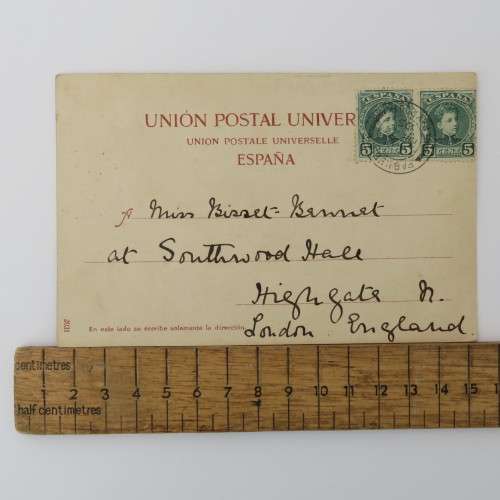 UNIÓN POSTAL UNIVER
UNION POSTALE UNIVERSELLE
ESPAÑA
ESPAÑA
5 5
ESPAÑA
5 5
A Miss Bisset-Bennet
at Southwood Hall
Highgate N.
London England
En este lado se escribe solamente la dirección
centimetres
1 2 3 4 5 6 7 8 9 10 11 12 13 14 15
half centimetres